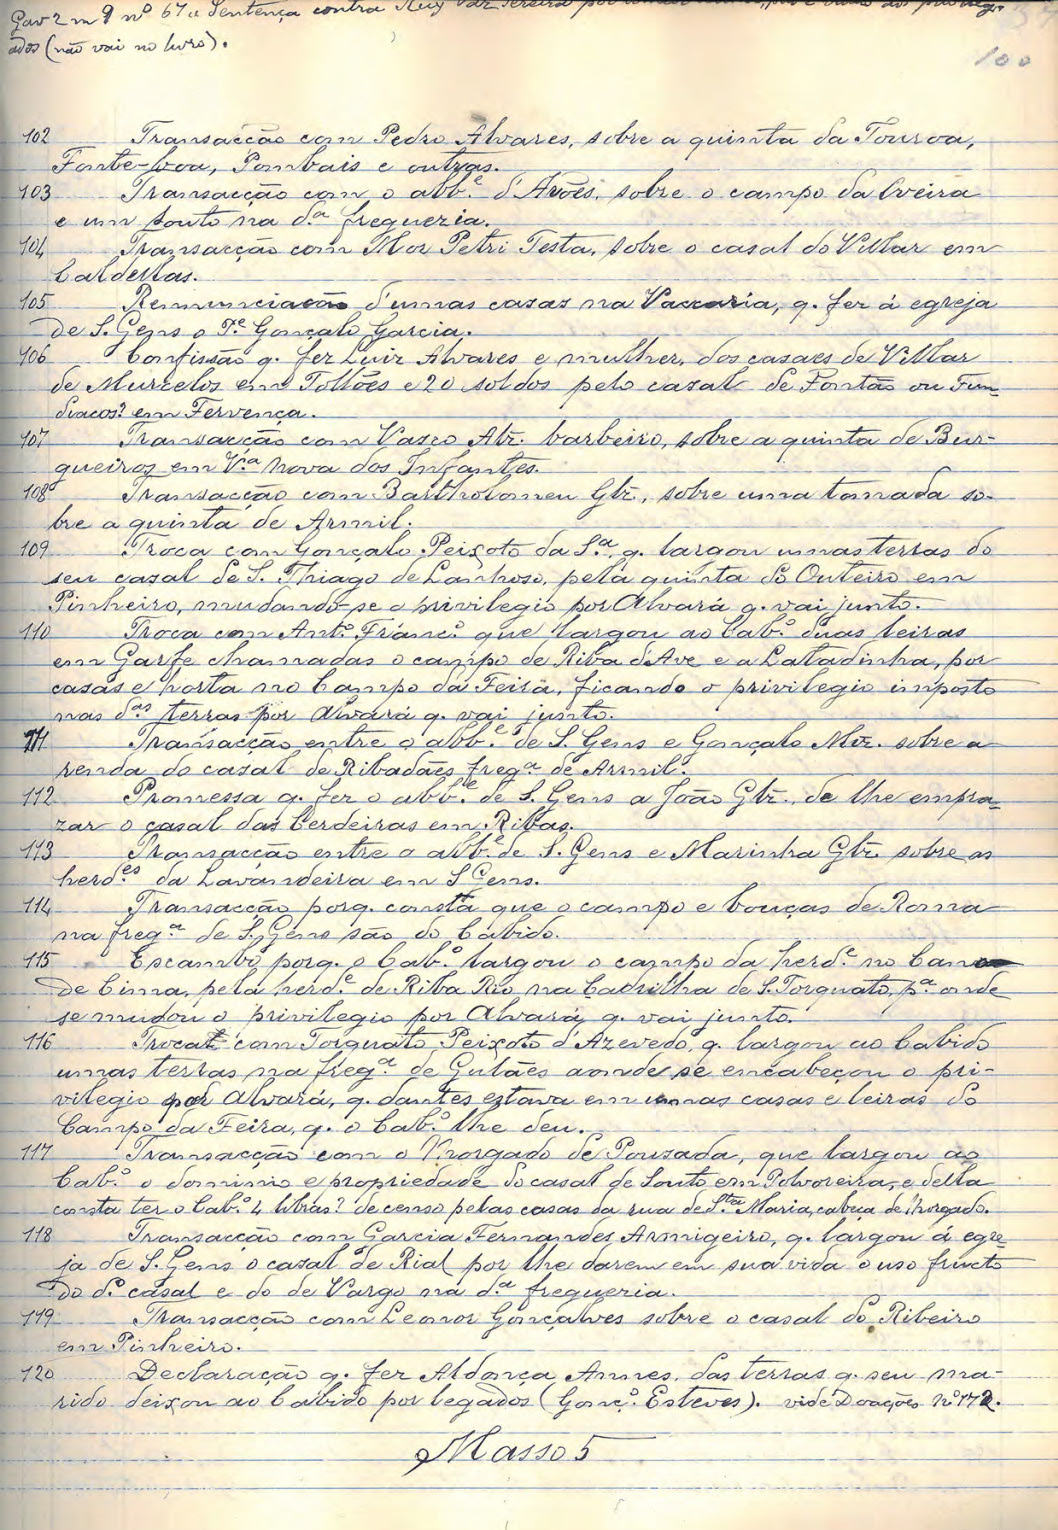 Gav 2 m 9 nº 67 a Sentença contra Ruy Vaz Pereira
ados (não vai no livro).
100
102 Transacção com Pedro Alvares, sobre a quinta da Touroa,
Fonte-boa, Pombais e outras.
103 Transacção com o abbe d'Arões, sobre o campo da Oveira
e um souto na da freguezia.
104 Transacção com Mor Petri Testa, sobre o casal do Villar em
Caldellas.
105 Renunciação d'umas casas na Vaccaria, q. fez á egreja
de S. Gens o Pe Gonçalo Garcia.
106 Confissão q. fez Luiz Alvares e mulher, dos casaes de Villar
de Murzelos em Tollões e 20 soldos pelo casal de Fontão ou Fun-
diacos? em Fervença.
107 Transacção com Vasco Alz. barbeiro, sobre a quinta de Bur-
gueiros em Va Nova dos Infantes.
108 Transacção com Bartholomeu Glz., sobre uma tomada so-
bre a quinta de Armil.
109 Troca com Gonçalo Peixoto da Sa, q. largou umas terras do
seu casal de S. Thiago de Lanhoso, pela quinta do Outeiro em
Pinheiro, mudando-se o privilegio por Alvará q. vai junto.
110 Troca com Anto Franco que largou ao Cabo duas leiras
em Garfe chamadas o campo de Riba d'Ave e a Latadinha, por
casas e horta no Campo da Feira, ficando o privilegio imposto
nas das terras por Alvará q. vai junto.
111 Transacção entre o abbe de S. Gens e Gonçalo Miz. sobre a
renda do casal de Ribadães frega de Armil.
112 Promessa q. fez o abbe de S. Gens a João Glz., de lhe empra-
zar o casal das Cerdeiras em Ribas.
113 Transacção entre o abbe de S. Gens e Marinha Glz. sobre as
herdes da Lavandeira em S Gens.
114 Transacção porq. consta que o campo e bouças de Roma
na frega de S. Gens são do Cabido.
115 Escambo porq. o Cabo largou o campo da herde no
de Cima, pela herde de Riba Rio na Cadrilha de S. Torquato, pa onde
se mudou o privilegio por Alvará, q. vai junto.
116 Troca com Torquato Peixoto d'Azevedo, q. largou ao Cabido
umas terras na frega de Gulães aonde se encabeçou o pri-
vilegio por Alvará, q. dantes estava em umas casas e leiras do
Campo da Feira, q. o Cabo lhe deu.
117 Transacção com o Morgado de Pousada, que largou ao
Cabo o dominio e propriedade do casal de Souto em Polvoreira, e della
consta ter o Cabo 4 libras? de censo pelas casas da rua de Sta Maria, cabeça de Morgado.
118 Transacção com Garcia Fernandes, Armigeiro, q. largou á egre-
ja de S. Gens o casal de Rial por lhe darem em sua vida o uso fructo
do do casal e do de Vargo na da freguezia.
119 Transacção com Leonor Gonçalves sobre o casal do Ribeiro
em Pinheiro.
120 Declaração q. fez Aldonça Annes, das terras q. seu ma-
rido deixou ao Cabido por legados (Gonço Esteves). vide Doações nº 172.
Masso 5